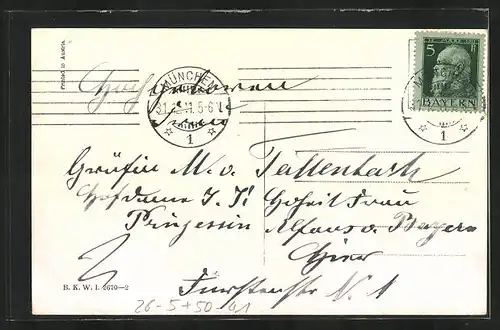 Printed in Austria.
MÜNCHEN
31. 12. 11. 5-6 N
1
12 MÄRZ 1911
5 Pf
BAYERN
1
Hochgeboren
Gräfin M. v. Tattenbach
Hofdame I. K. Hoheit Frau
Prinzessin Alfons v. Bayern
Hier
Fürstenstr N. 1
B. K. W. I. 2670-2
26-5+50-41